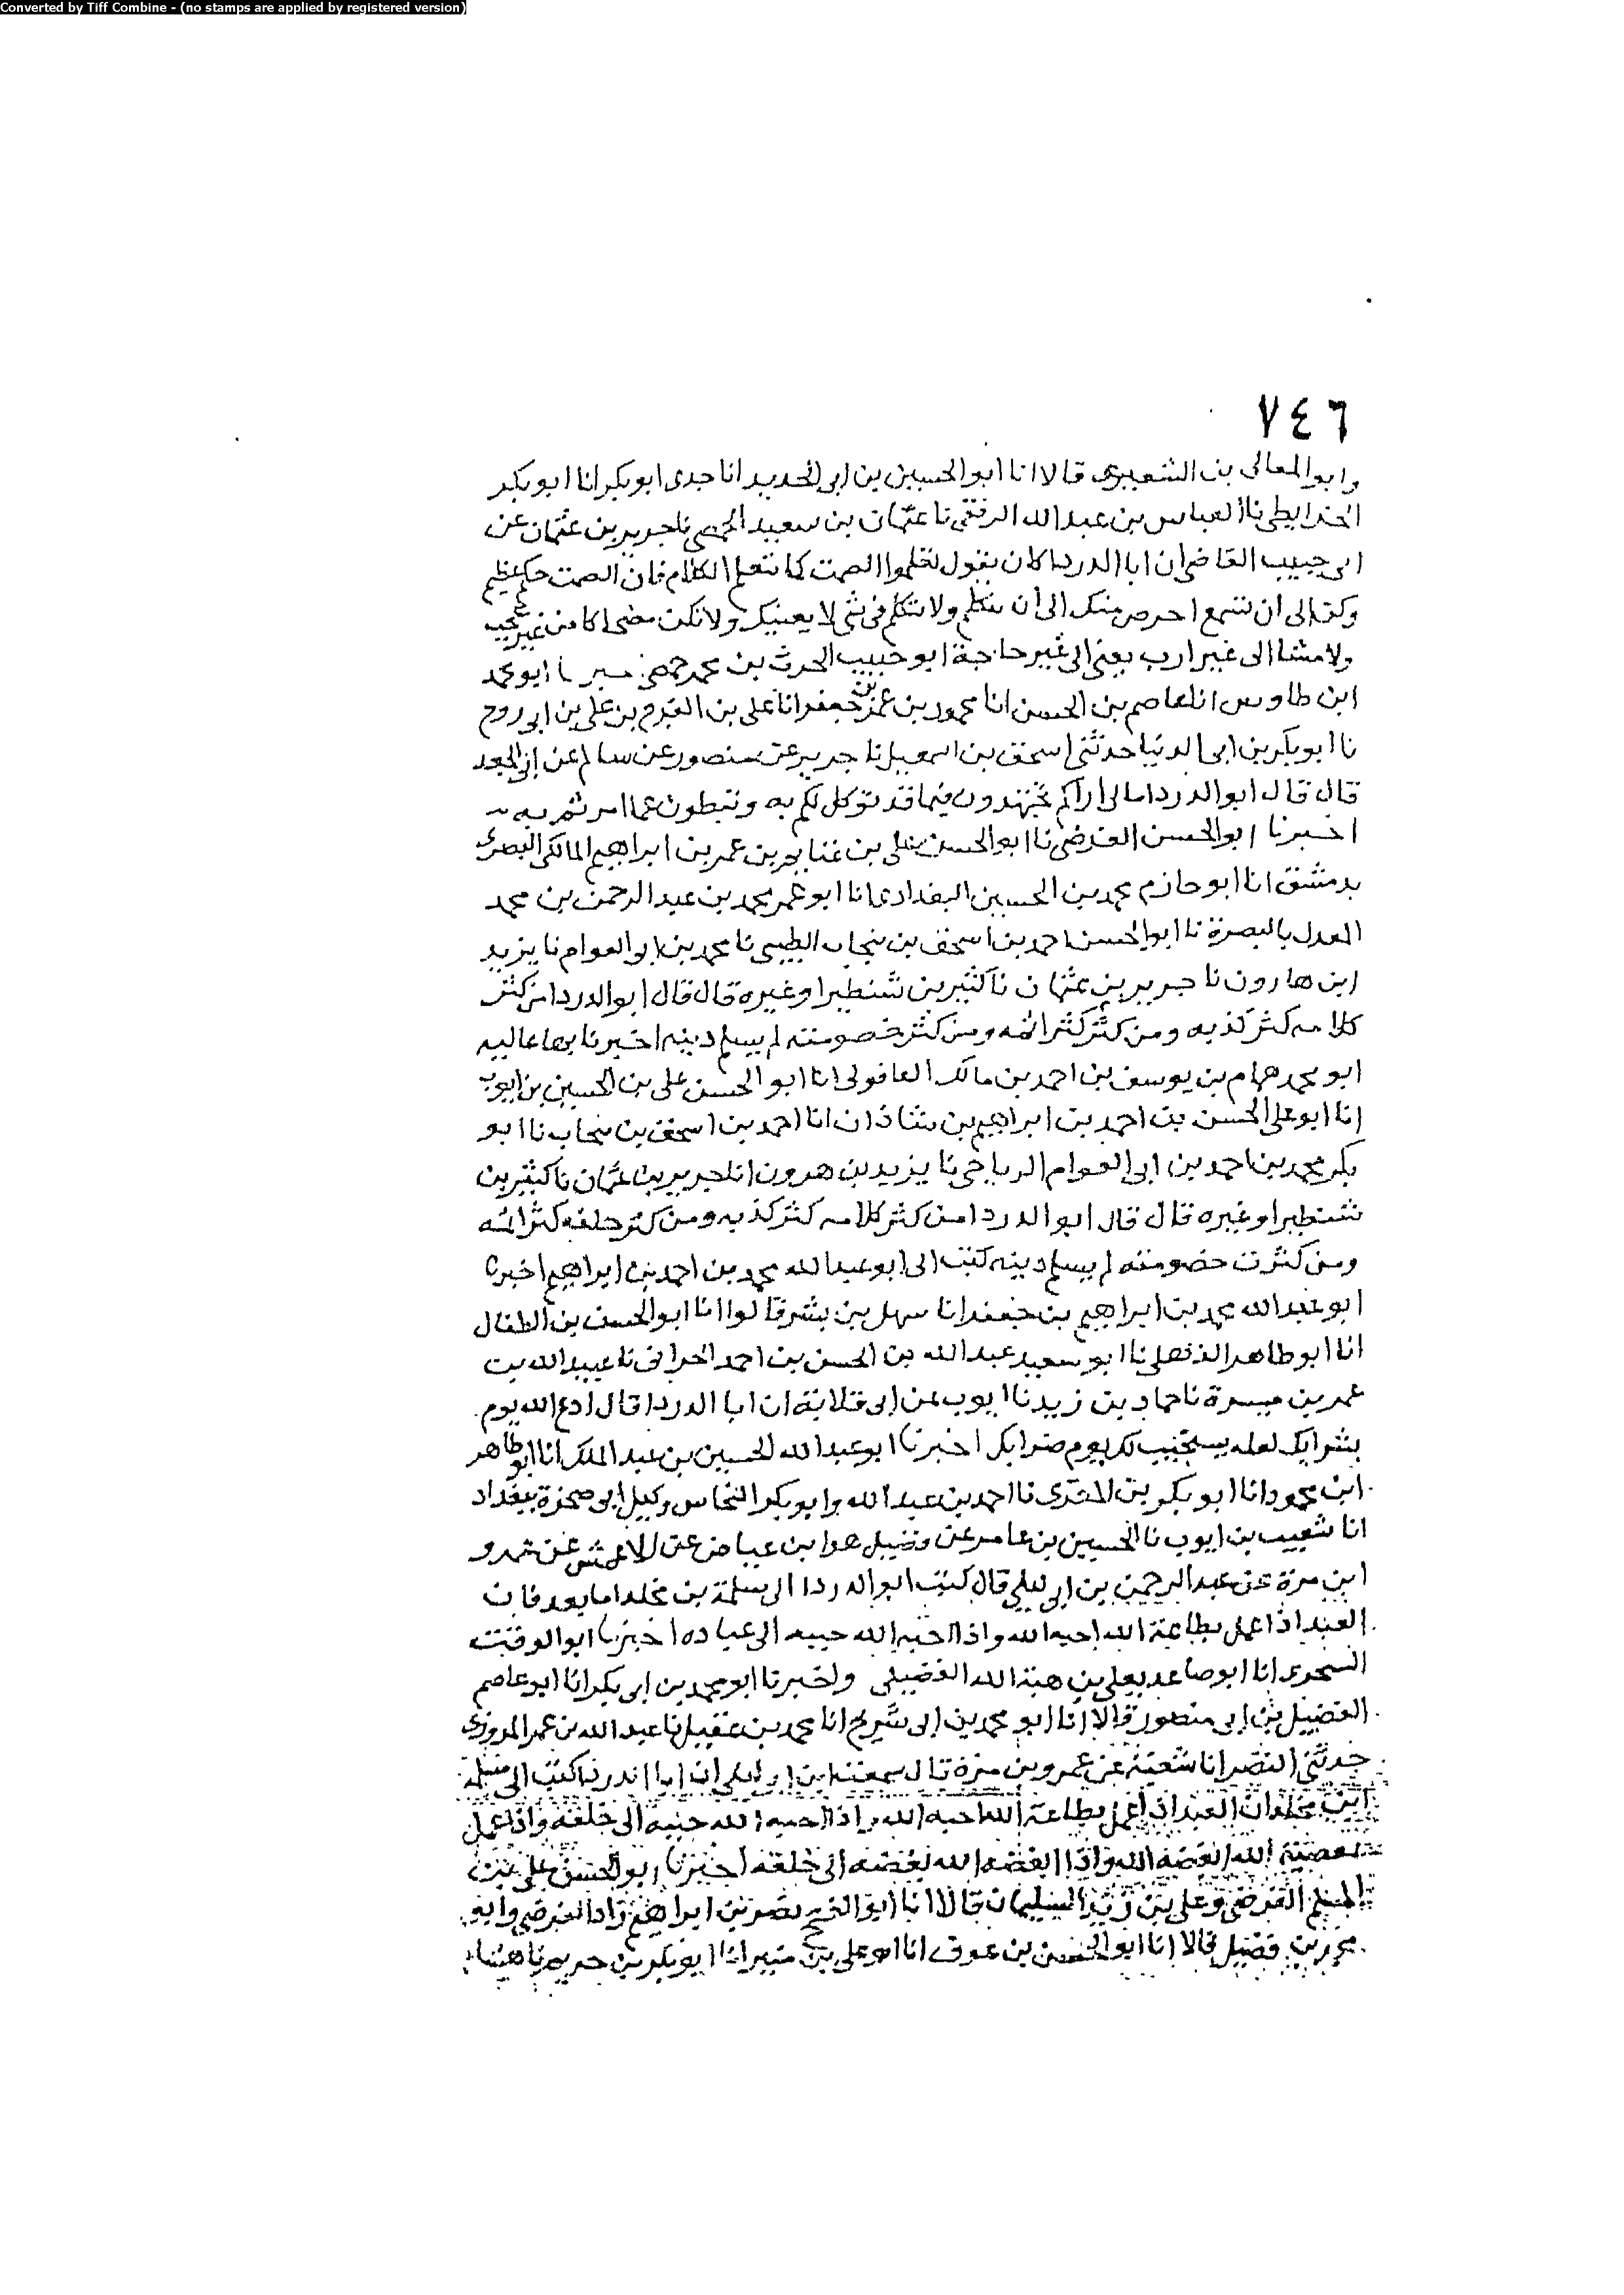 Converted by Tiff Combine - (no stamps are applied by registered version)
٧٤٦
وابو المعالى بن الشعيرى قالا انا ابو الحسين بن ابى الحديد انا جدى ابو بكر انا ابو بكر
الخرايطى نا العباس بن عبد الله الرقفى نا عثمان بن سعيد الحمصى نا جرير بن عثمان عن
ابى حبيب القاضى ان ابا الدردا كان يقول تعلموا الصمت كما تتعلم الكلام فان الصمت حكم عظيم
وكن الى ان تسمع احرص منك الى ان تتكلم ولا تتكلم فى شى لا يعنيك ولا تكن مضحاكا من غير عجب
ولا مشا الى غير ارب يعنى الى غير حاجة ابو حبيب الحرث بن محمد حمصى خبرنا ابو محمد
ابن طاوس انا عاصم بن الحسن انا محمود بن عمر بن جعفر انا على بن الفرج بن على بن ابى روح
نا ابو بكر بن ابى الدنيا حدثنى اسحق بن اسمعيل نا جرير عن منصور عن سالم عن ابى الجعد
قال قال ابو الدردا مالى اراكم تجتهدون فيما قد توكل لكم به وتبطون عما امرتم به
اخبرنا ابو الحسن الفرضى نا ابو الحسن على بن غنايم بن عمر بن ابراهيم المالكى البصرى
بدمشق انا ابو حازم محمد بن الحسين البغدادى انا ابو عمر محمد بن عبد الرحمن بن محمد
المعدل بالبصرة نا ابو الحسن احمد بن اسحق بن نيجاب الطيبى نا محمد بن ابو العوام نا يزيد
ابن هارون نا جرير بن عثمان نا كثير بن شنطير او غيره قال قال ابو الدردا من كثر
كلامه كثر كذبه ومن كثر كثر اثمه ومن كثر خصومته لم يسلم دينه اخبرنا بها عاليه
ابو محمد همام بن يوسف بن احمد بن مالك العاقولى انا ابو الحسن على بن الحسين بن ايوب
انا ابو على الحسن بن احمد بن ابراهيم بن شاذان انا احمد بن اسحق بن نيجاب نا ابو
بكر محمد بن احمد بن ابى العوام الرياحى نا يزيد بن هرون انا جرير بن عثمان نا كثير بن
شنطير او غيره قال قال ابو الدردا من كثر كلامه كثر كذبه ومن كثر حلفه كثر اثمه
ومن كثرت خصومته لم يسلم دينه كتبت الى ابو عبد الله محمد بن احمد بن ابراهيم اخبرنا
ابو عبد الله محمد بن ابراهيم بن جعفر انا سهل بن بشر قالوا انا ابو الحسن بن الطفال
انا ابو طاهر الذهلى نا ابو سعيد عبد الله بن الحسن بن احمد الحرانى نا عبيد الله بن
عمر بن ميسرة نا حماد بن زيد نا ايوب عن ابى قلابة ان ابا الدردا قال ادع الله يوم
بشرايك لعله يستجيب لك يوم ضرايك اخبرنا ابو عبد الله الحسين بن عبد الملك انا ابو طاهر
ابن محمود انا ابو بكر بن المقرى نا احمد بن عبد الله وابو بكر النخاس وكيل ابى صخرة ببغداد
انا شعيب بن ايوب نا الحسين بن عامر عن فضيل هو ابن عياض عن الاعمش عن عمرو
ابن مرة عن عبد الرحمن بن ابى ليلى قال كتب ابو الدردا الى مسلمة بن مخلد اما بعد فان
العبد اذا عمل بطاعة الله احبه الله واذا احبه الله حببه الى عباده اخبرنا ابو الوقت
السجزى انا ابو صاعد يعلى بن هبة الله الفضيلى ولخبرنا ابو محمد بن ابى بكر انا ابو عاصم
الفضيل بن ابى منصور قالا انا ابو محمد بن ابى شريح انا محمد بن عقيل نا عبد الله بن عمر المروزى
حدثنى النضر انا شعبة عن عمرو بن مرة قال سمعت ابن ابى ليلى ان ابا الدردا كتب الى مسلمة
ابن مخلد ان العبد اذا عمل بطاعة الله احبه الله واذا احبه الله حببه الى خلقه واذا عمل
بمعصية الله ابغضه الله واذا ابغضه الله بغضه الى خلقه اخبرنا ابو الحسن على بن
المسلم الفرضى وعلى بن زيد السليمان قالا انا ابو الفتح نصر بن ابراهيم زاد الفرضى وابو
محمد بن فضيل قالا انا ابو الحسن بن عوف انا ابو على بن منير انا ابو بكر بن خريم نا هشام